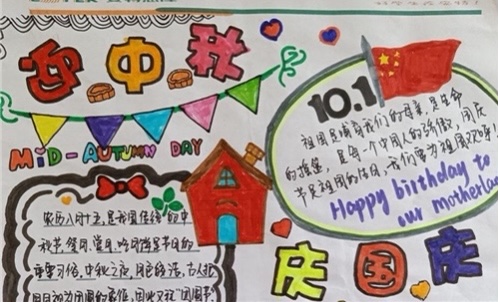 迎中秋
MID-AUTUMN DAY
农历八月十五是我国传统的中
秋节,赏月、吃月饼是节日的
重要习俗,中秋之夜,月色皎洁,古人把
圆月视为团圆的象征,因此又称"团圆节
10.1
祖国是哺育我们的母亲,是生命
的摇篮,是每一个中国人的骄傲,国庆
节是祖国的生日,我们要为祖国
Happy birthday to
our motherland
庆国庆